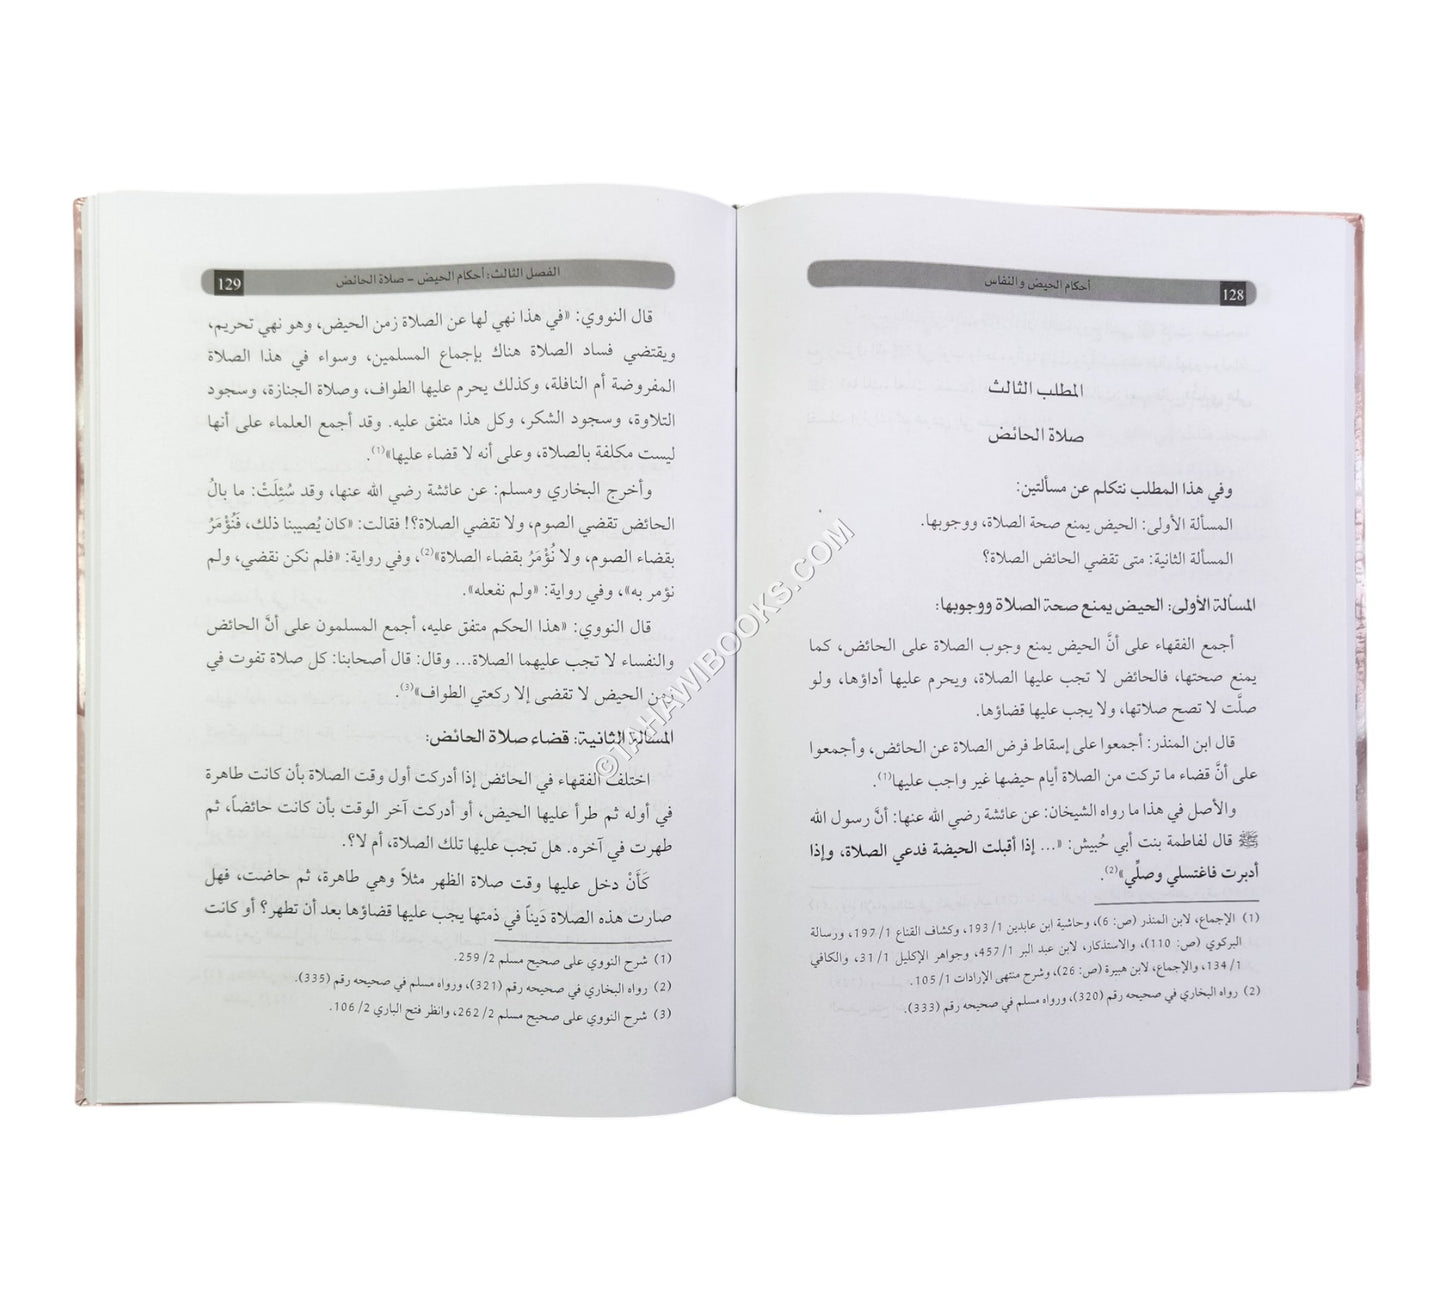 128
أحكام الحيض والنفاس
المطلب الثالث
صلاة الحائض
وفي هذا المطلب نتكلم عن مسألتين:
المسألة الأولى: الحيض يمنع صحة الصلاة، ووجوبها.
المسألة الثانية: متى تقضي الحائض الصلاة؟
المسألة الأولى: الحيض يمنع صحة الصلاة ووجوبها:
أجمع الفقهاء على أنَّ الحيض يمنع وجوب الصلاة على الحائض، كما
يمنع صحتها، فالحائض لا تجب عليها الصلاة، ويحرم عليها أداؤها، ولو
صلَّت لا تصح صلاتها، ولا يجب عليها قضاؤها.
قال ابن المنذر: أجمعوا على إسقاط فرض الصلاة عن الحائض، وأجمعوا
على أنَّ قضاء ما تركت من الصلاة أيام حيضها غير واجب عليها(1).
والأصل في هذا ما رواه الشيخان: عن عائشة رضي الله عنها: أنَّ رسول الله
ﷺ قال لفاطمة بنت أبي حُبيش: «... إذا أقبلت الحيضة فدعي الصلاة، وإذا
أدبرت فاغتسلي وصلِّي»(2).
(1) الإجماع، لابن المنذر (ص: 6)، وحاشية ابن عابدين 1/ 193، وكشاف القناع 1/ 197، ورسالة
البركوي (ص: 110)، والاستذكار، لابن عبد البر 1/ 457، وجواهر الإكليل 1/ 31، والكافي
1/ 134، والإجماع، لابن هبيرة (ص: 26)، وشرح منتهى الإرادات 1/ 105.
(2) رواه البخاري في صحيحه رقم (320)، ورواه مسلم في صحيحه رقم (333).
الفصل الثالث: أحكام الحيض - صلاة الحائض
129
قال النووي: «في هذا نهي لها عن الصلاة زمن الحيض، وهو نهي تحريم،
ويقتضي فساد الصلاة هناك بإجماع المسلمين، وسواء في هذا الصلاة
المفروضة أم النافلة، وكذلك يحرم عليها الطواف، وصلاة الجنازة، وسجود
التلاوة، وسجود الشكر، وكل هذا متفق عليه. وقد أجمع العلماء على أنها
ليست مكلفة بالصلاة، وعلى أنه لا قضاء عليها»(1).
وأخرج البخاري ومسلم: عن عائشة رضي الله عنها، وقد سُئِلَتْ: ما بالُ
الحائض تقضي الصوم، ولا تقضي الصلاة؟! فقالت: «كان يُصيبنا ذلك، فَنُؤْمَرُ
بقضاء الصوم، ولا نُؤْمَرُ بقضاء الصلاة»(2)، وفي رواية: «فلم نكن نقضي، ولم
نؤمر به»، وفي رواية: «ولم نفعله».
قال النووي: «هذا الحكم متفق عليه، أجمع المسلمون على أنَّ الحائض
والنفساء لا تجب عليهما الصلاة... وقال: قال أصحابنا: كل صلاة تفوت في
زمن الحيض لا تقضى إلا ركعتي الطواف»(3).
المسألة الثانية: قضاء صلاة الحائض:
اختلف الفقهاء في الحائض إذا أدركت أول وقت الصلاة بأن كانت طاهرة
في أوله ثم طرأ عليها الحيض، أو أدركت آخر الوقت بأن كانت حائضاً، ثم
طهرت في آخره. هل تجب عليها تلك الصلاة، أم لا؟.
كَأَنْ دخل عليها وقت صلاة الظهر مثلاً وهي طاهرة، ثم حاضت، فهل
صارت هذه الصلاة دَيناً في ذمتها يجب عليها قضاؤها بعد أن تطهر؟ أو كانت
(1) شرح النووي على صحيح مسلم 2/ 259.
(2) رواه البخاري في صحيحه رقم (321)، ورواه مسلم في صحيحه رقم (335).
(3) شرح النووي على صحيح مسلم 2/ 262، وانظر فتح الباري 2/ 106.
©TAHAWIBOOKS.COM